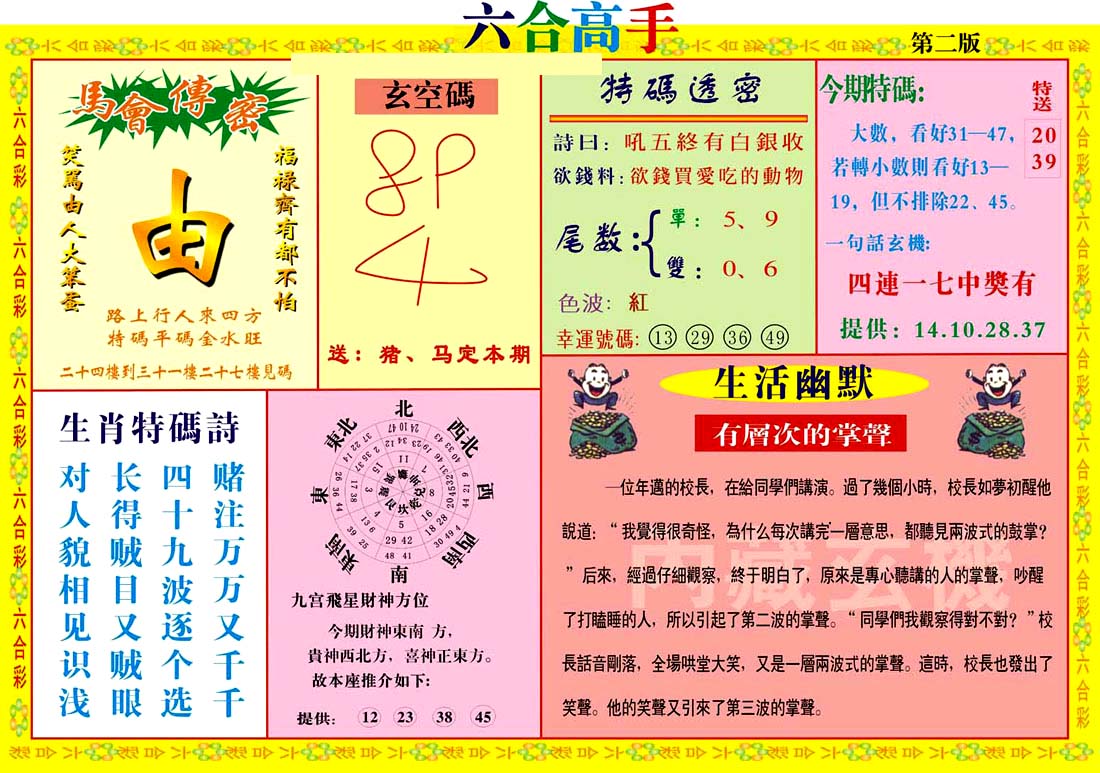 六合高手
第二版
馬會傳密
笑罵由人大笨蛋
由
福祿齊有都不怕
路上行人來四方
特碼平碼金水旺
二十四樓到三十一樓二十七樓見碼
玄空碼
8P
4
送：猪、马定本期
特碼透密
詩曰：吼五終有白銀收
欲錢料：欲錢買愛吃的動物
尾数：
單：5、9
雙：0、6
色波：紅
幸運號碼：13 29 36 49
今期特碼:
特送
20
39
大數，看好31—47，
若轉小數則看好13—
19，但不排除22、45。
一句話玄機:
四連一七中獎有
提供：14.10.28.37
生肖特碼詩
赌注万万又千千
四十九波逐个选
长得贼目又贼眼
对人貌相见识浅
北
西北
西
西南
南
東南
東
東北
九宫飛星財神方位
今期財神東南 方，
貴神西北方，喜神正東方。
故本座推介如下:
提供： 12 23 38 45
生活幽默
有層次的掌聲
一位年邁的校長，在給同學們講演。過了幾個小時，校長如夢初醒他
說道：“我覺得很奇怪，為什么每次講完一層意思，都聽見兩波式的鼓掌？
”后來，經過仔細觀察，終于明白了，原來是專心聽講的人的掌聲，吵醒
了打瞌睡的人，所以引起了第二波的掌聲。“同學們我觀察得對不對？”校
長話音剛落，全場哄堂大笑，又是一層兩波式的掌聲。這時，校長也發出了
笑聲。他的笑聲又引來了第三波的掌聲。
内藏玄機
六合彩 六合彩 六合彩 六合彩 六合彩